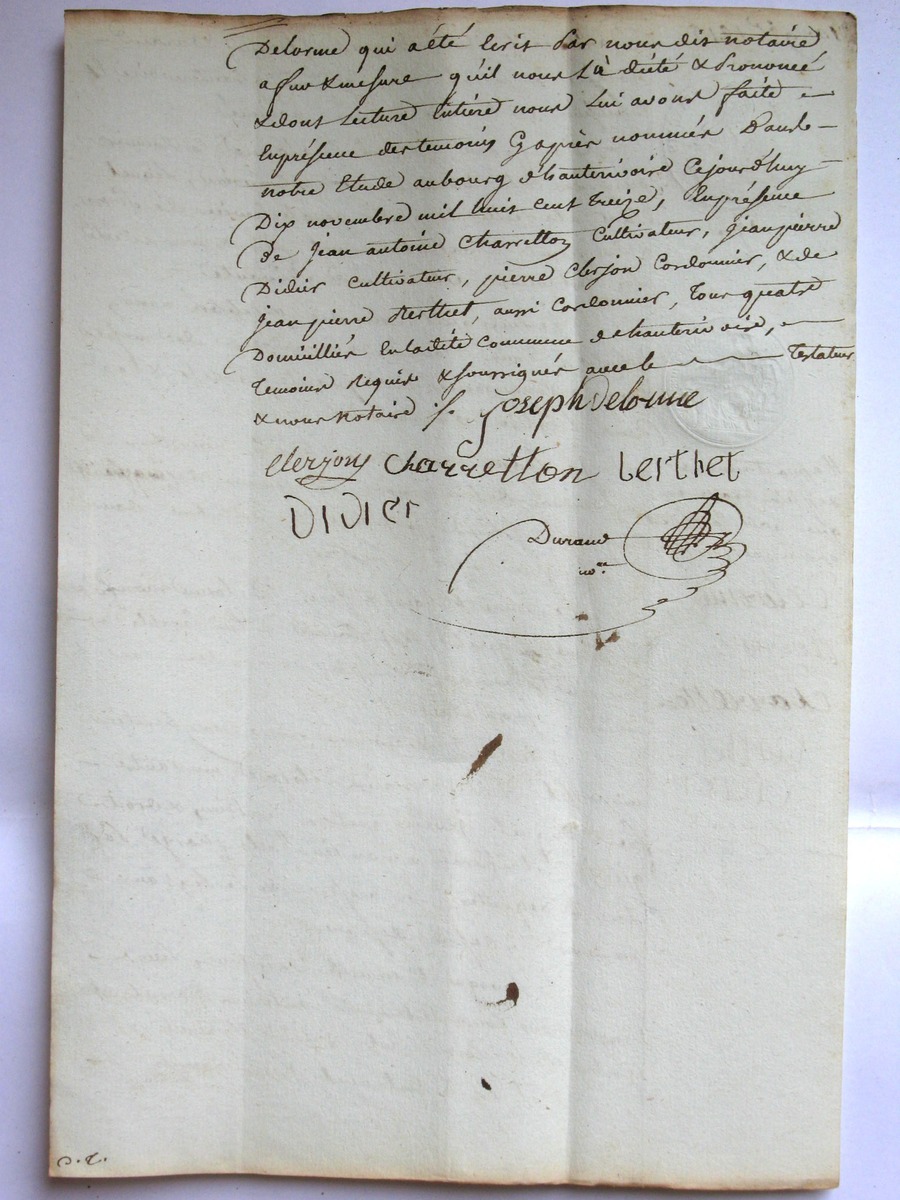 Delorme qui a été Ecrit Par nous dit notaire
a fur & mésure qu'il nous L'a dicté & Prononcé
& dont Lecture Entiére nous Lui avons faite
En présence des temoins Cy après nommés Dans
notre Etude au bourg d'hauterivoire Cejourd'huy
Dix novembre mil huit cent treize, En présence
De Jean antoine Charretton Cultivateur, jean pierre
Didier Cultivateur, pierre Clerjon Cordonnier, & de
jean pierre Berthet, aussi Cordonnier, tous quatre
Domiciliés En ladite Commune de hauterivoire,
temoins Requis & soussignés avec le Testateur
& nous Notaire /. joseph Delorme
Clerjon Charretton berthet
Didier
Durand
no.re